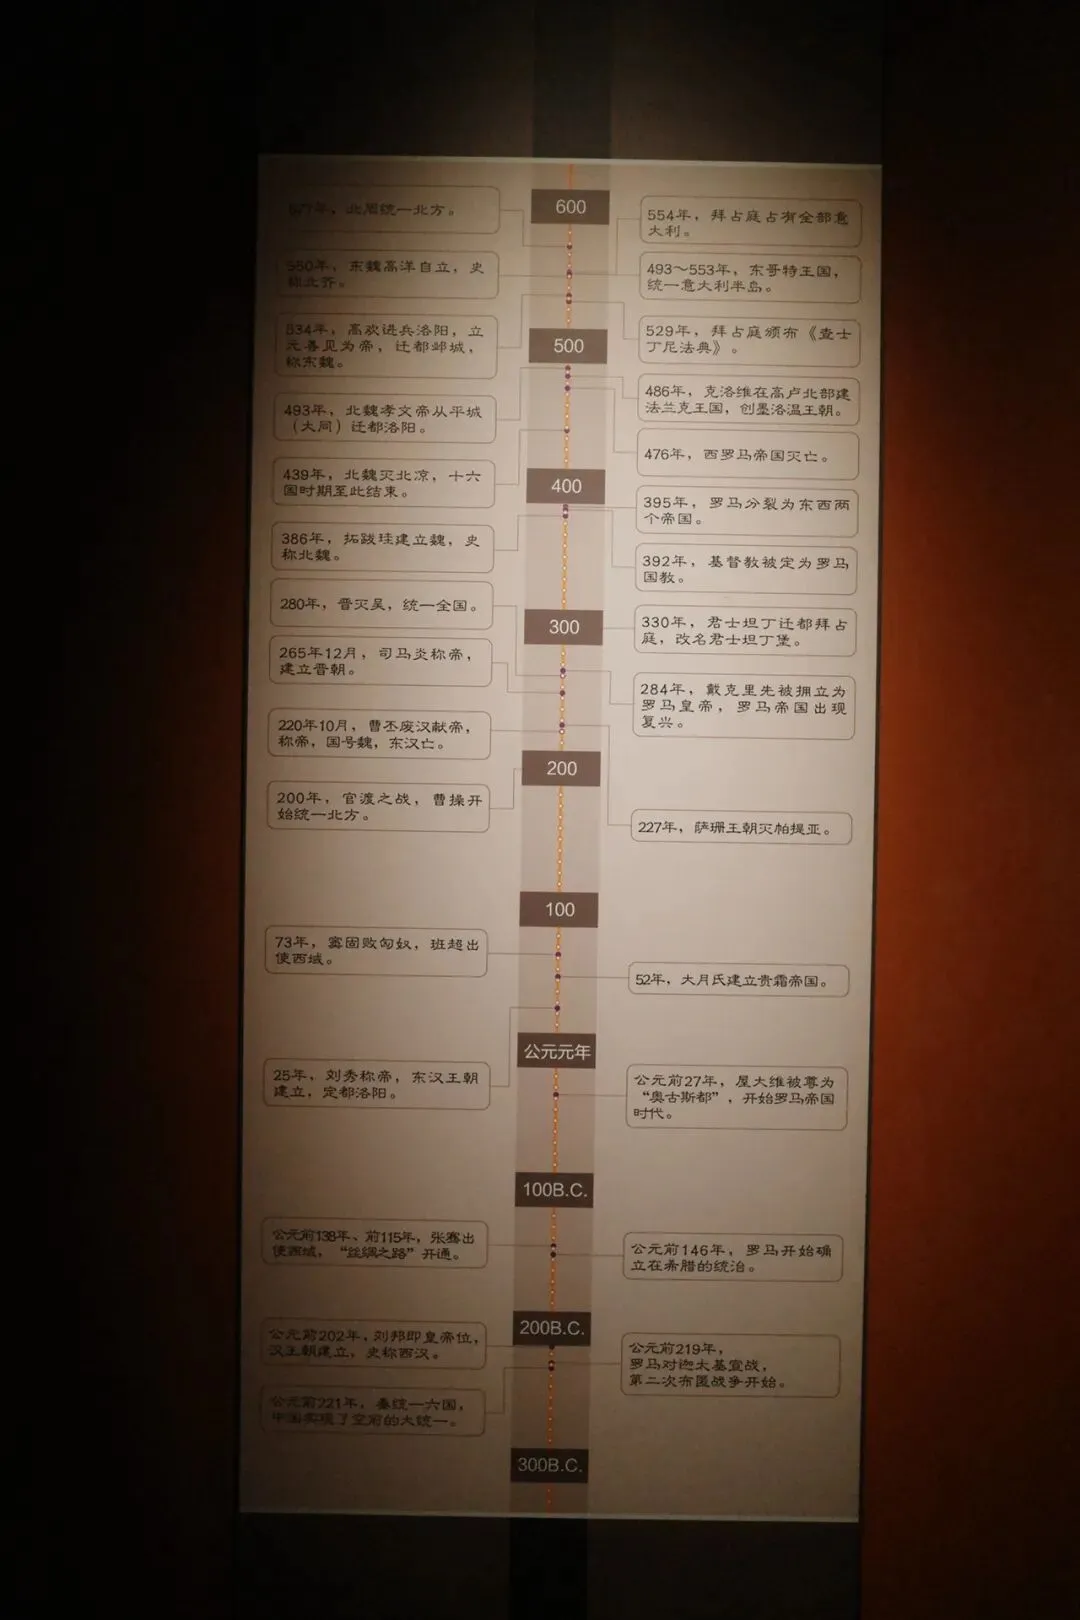 600
577年，北周统一北方。
554年，拜占庭占有全部意
大利。
550年，东魏高洋自立，史
称北齐。
493～553年，东哥特王国，
统一意大利半岛。
534年，高欢进兵洛阳，立
元善见为帝，迁都邺城，
称东魏。
529年，拜占庭颁布《查士
丁尼法典》。
500
493年，北魏孝文帝从平城
（大同）迁都洛阳。
486年，克洛维在高卢北部建
法兰克王国，创墨洛温王朝。
439年，北魏灭北凉，十六
国时期至此结束。
476年，西罗马帝国灭亡。
400
386年，拓跋珪建立魏，史
称北魏。
395年，罗马分裂为东西两
个帝国。
392年，基督教被定为罗马
国教。
280年，晋灭吴，统一全国。
300
330年，君士坦丁迁都拜占
庭，改名君士坦丁堡。
265年12月，司马炎称帝，
建立晋朝。
284年，戴克里先被拥立为
罗马皇帝，罗马帝国出现
复兴。
220年10月，曹丕废汉献帝，
称帝，国号魏，东汉亡。
200
200年，官渡之战，曹操开
始统一北方。
227年，萨珊王朝灭帕提亚。
100
73年，窦固败匈奴，班超出
使西域。
52年，大月氏建立贵霜帝国。
公元元年
25年，刘秀称帝，东汉王朝
建立，定都洛阳。
公元前27年，屋大维被尊为
“奥古斯都”，开始罗马帝国
时代。
100B.C.
公元前138年、前115年，张骞出
使西域，“丝绸之路”开通。
公元前146年，罗马开始确
立在希腊的统治。
200B.C.
公元前202年，刘邦即皇帝位，
汉王朝建立，史称西汉。
公元前219年，
罗马对迦太基宣战，
第二次布匿战争开始。
公元前221年，秦统一六国，
中国实现了空前的大统一。
300B.C.